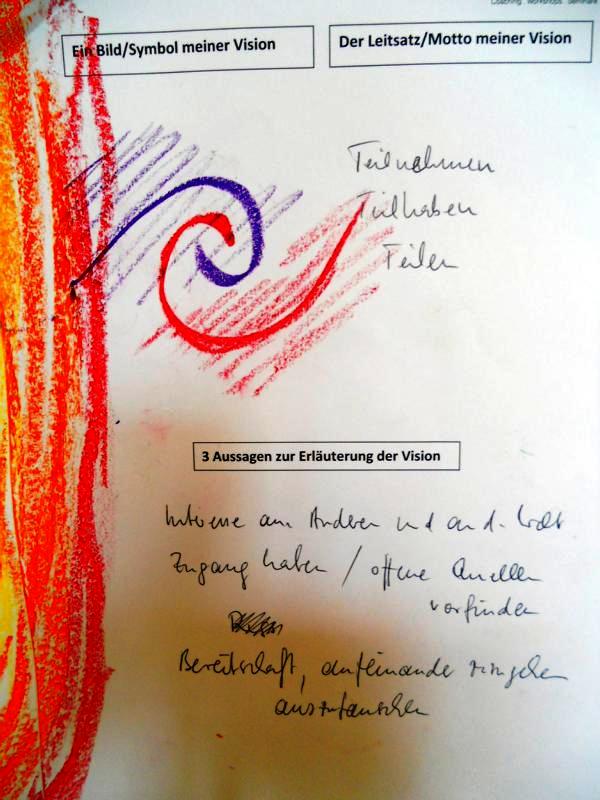 Coaching Workshops Seminare
Ein Bild/Symbol meiner Vision
Der Leitsatz/Motto meiner Vision
Teilnehmen
Teilhaben
Teilen
3 Aussagen zur Erläuterung der Vision
Interesse am Anderen und an d. Welt
Zugang haben / offene Quellen
vorfinden
Bereitschaft, aufeinander zuzugehen
auszutauschen